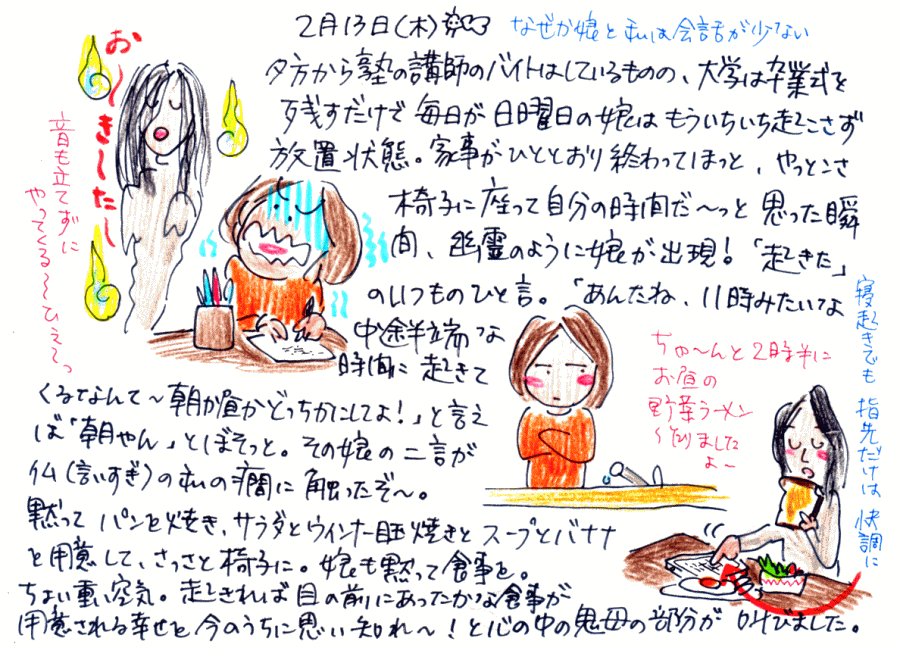 2月13日(木)
なぜか娘と私は会話が少ない
夕方から塾の講師のバイトはしているものの、大学は卒業式を
残すだけで毎日が日曜日の娘はもういちいち起こさず
放置状態。家事がひととおり終わってほっと、やっとこさ
椅子に座って自分の時間だ〜っと思った瞬
間、幽霊のように娘が出現!「起きた」
のいつものひと言。「あんたね、11時みたいな
中途半端な
時間に起きて
くるなんて〜朝か昼かどっちかにしてよ!」と言え
ば「朝やん」とぼそっと。その娘の二言が
仏(言いすぎ)の私の癇に触ったぞ〜。
黙ってパンを焼き、サラダとウインナー目玉焼きとスープとバナナ
を用意して、さっさと椅子に。娘も黙って食事を。
ちょい重い空気。起きれば目の前にあったかな食事が
用意される幸せを今のうちに思い知れ〜!と心の中の鬼母の部分が叫びました。
お〜き〜た〜
音も立てずに
やってくる〜ひえ〜っ
ちゅ〜んと2時半に
お昼の
野菜ラーメン
〜となりました
よー
寝起きでも指先だけは快調に